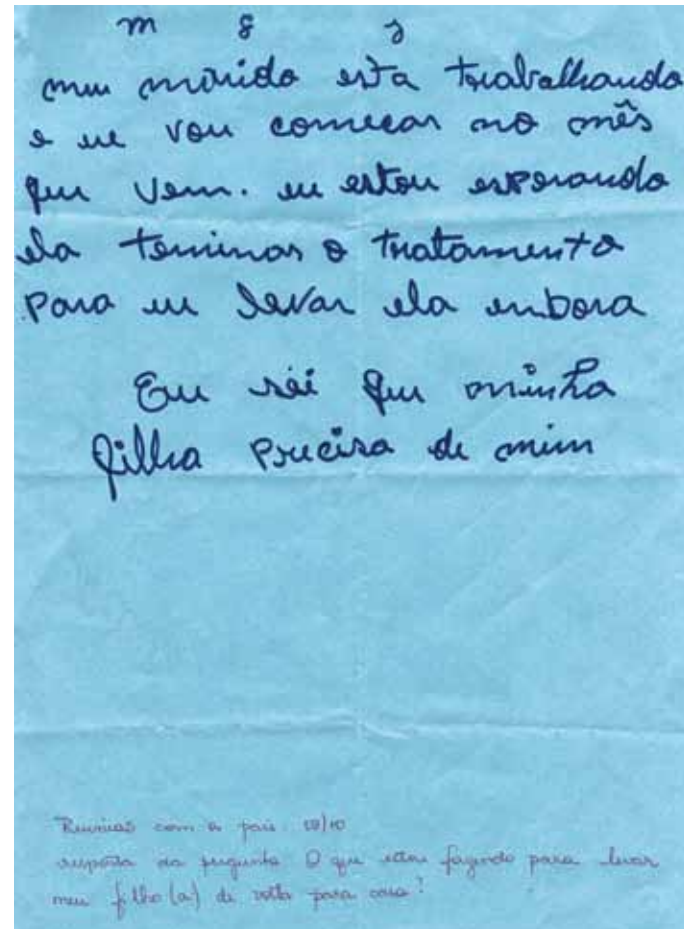 m g s
meu marido esta trabalhando
e eu vou começar no mês
que vem. eu estou esperando
ela teminar o tratamento
para eu levar ela enbora
Eu sei que minha
filha precisa de mim
Reunião com os pais
resposta da pergunta O que estou fazendo para levar
meu filho (a) de volta para casa?